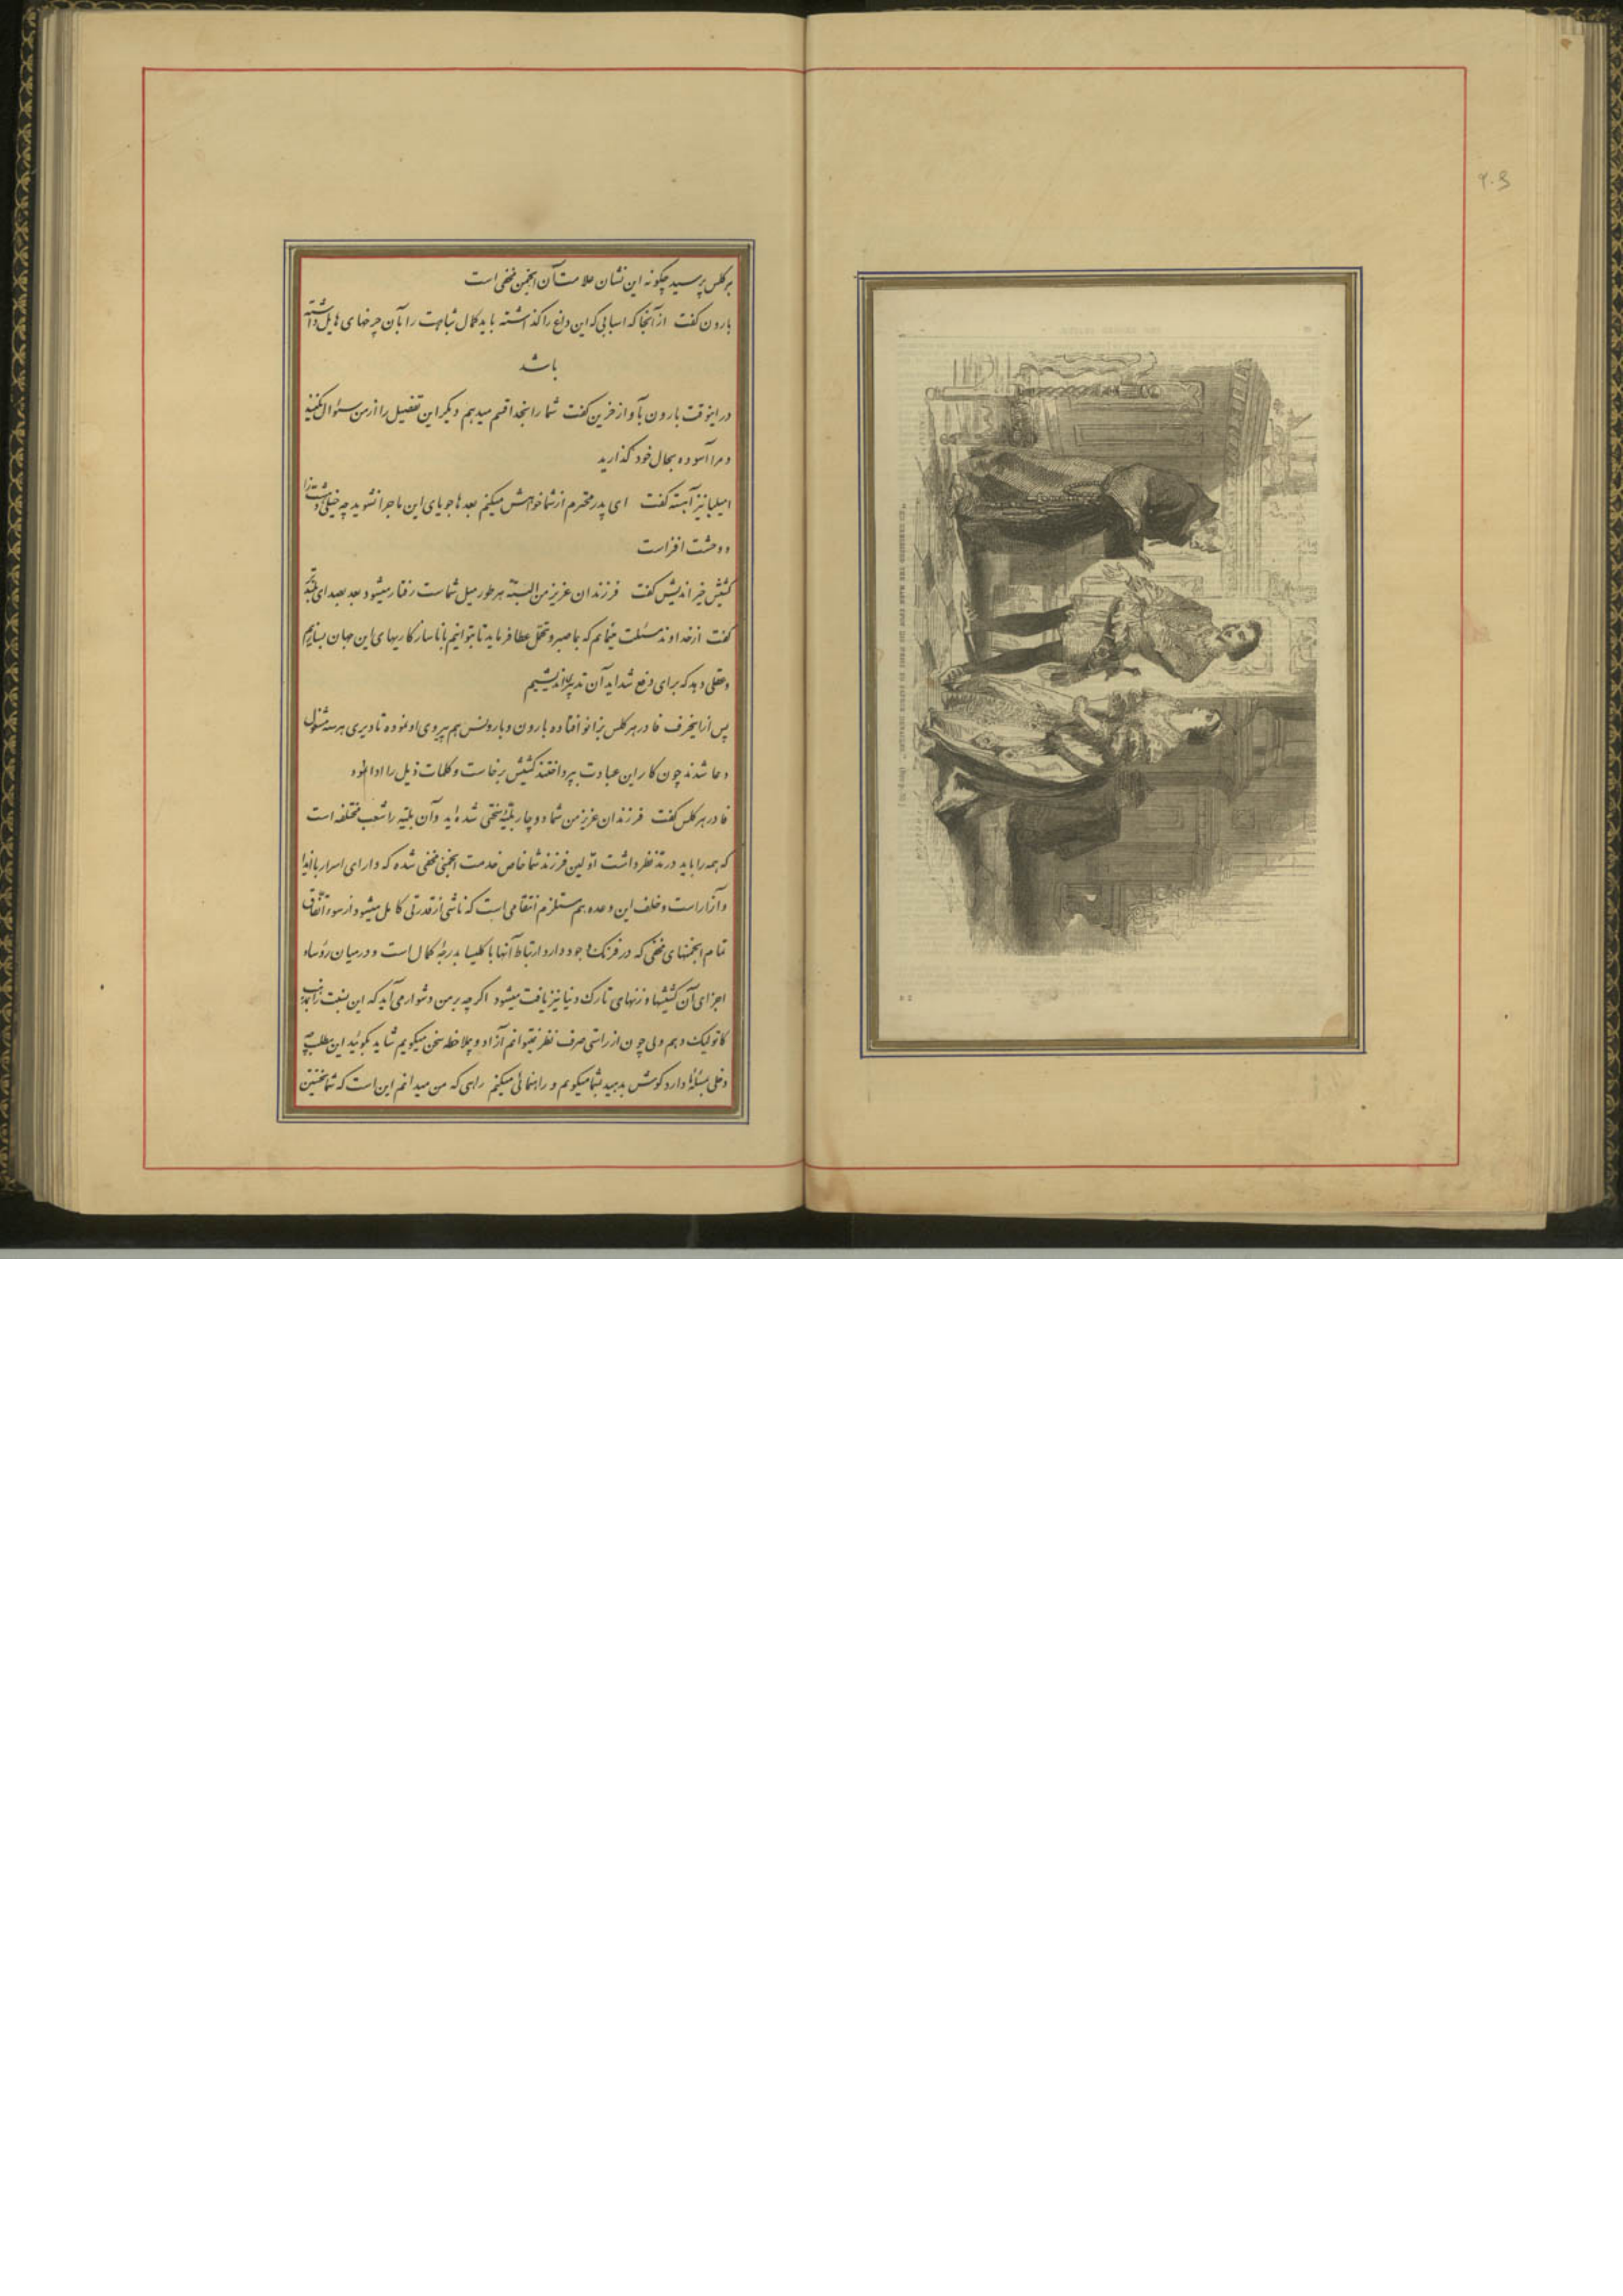 هرکلس پرسید چگونه این نشان علامت آن انجمن مخفی است
بارون گفت از آنجا که اسبابی که این داغ را گذاشته باید کمال شباهت را بآن چرخهای هایل داشته
باشد
در اینوقت بارون بآواز حزین گفت شما را بخدا قسم میدهم دیگر این تفصیل را از من سئوال نکنید
و مرا آسوده بحال خود گذارید
امیلیا نیز آهسته گفت ای پدر محترم از شما خواهش میکنم بعدها جویای این ماجرا نشوید چه خیلی
و وحشت افزاست
کشیش خیراندیش گفت فرزندان عزیز من البته هر طور میل شماست رفتار میشود بعد بصدای بلند
گفت از خداوند مسئلت مینمایم که بما صبر و تحمل عطا فرماید تا بتوانیم با ناسازکاریهای این جهان بسازیم
و عقلی دهد که برای دفع شداید آن تدبیر اندیشیم
پس از اینحرف فادر هرکلس بزانو افتاده بارون و بارونس هم پیروی او نموده تا دیری هر سه مشغول
دعا شدند چون کار این عبادت بپرداختند کشیش برخاست و کلمات ذیل را ادا نمود
فادر هرکلس گفت فرزندان عزیز من شما دوچار بلیّهٔ سختی شده‌اید و آن بلیّه را شعب مختلفه است
که همه را باید در مدّ نظر داشت اوّلین فرزند شما خاص خدمت انجمنی مخفی شده که دارای اسرار با ایذا
و آزار است و خلف این وعده هم مستلزم انتقامی است که ناشی از قدرتی کامل میشود از سوء اتّفاق
تمام انجمنهای مخفی که در فرنگ وجود دارد ارتباط آنها با کلیسا بدرجهٔ کمال است و در میان رؤساء
اجزای آن کشیشها و زنهای تارک دنیا نیز یافت میشود اگرچه بر من دشوار می‌آید که این نسبت را بمذهب
کاتولیک دهم ولی چون از راستی صرف نظر نمیتوانم آزاد و بیملاحظه سخن میگویم شاید بگوئید این مطلب چه
دخلی بمسئلهٔ ما دارد گوش بدهید بشما میگویم و راهنمائی میکنم راهی که من میدانم این است که شما نخستین